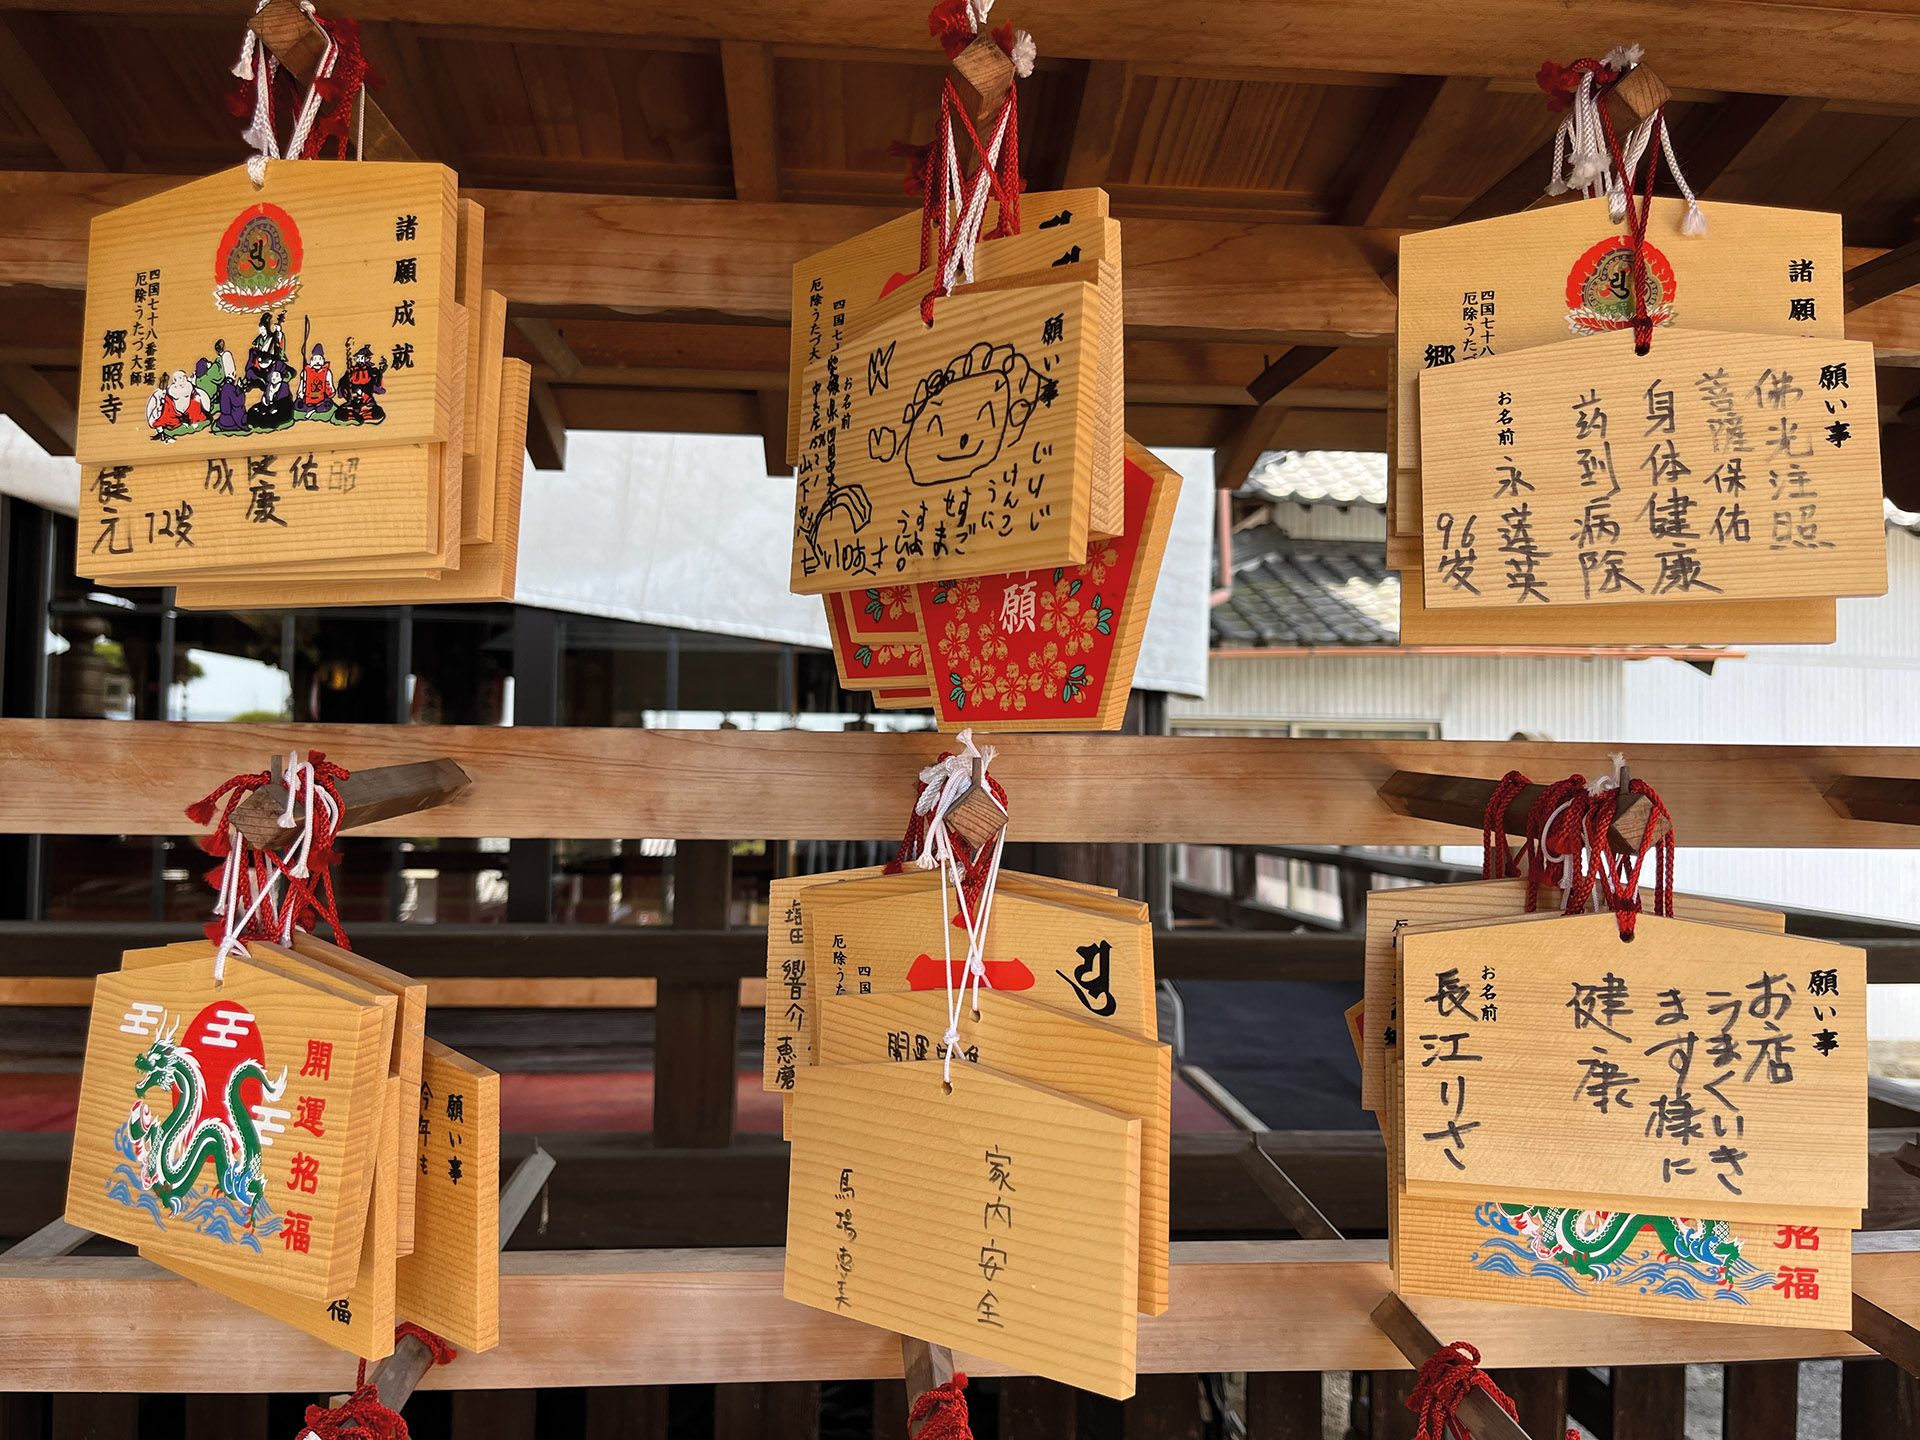 諸願成就
四国七十八番霊場
厄除うたづ大師
郷照寺
佑
健康
成
健元
72岁
願い事
お名前
四国七
厄除うたづ大
山下
じりじ
けんこ
うに
すご
せま
すように
願
諸願
四国七十八
厄除うたづ
郷
願い事
佛光注照
菩薩保佑
身体健康
药到病除
お名前
永莲英
96岁
開運招福
願い事
今年も
福
塩田響介
恵磨
四国
厄除うた
開運
家内安全
馬場恵美
願い事
お店
うまくいき
ます様に
健康
お名前
長江りさ
招福